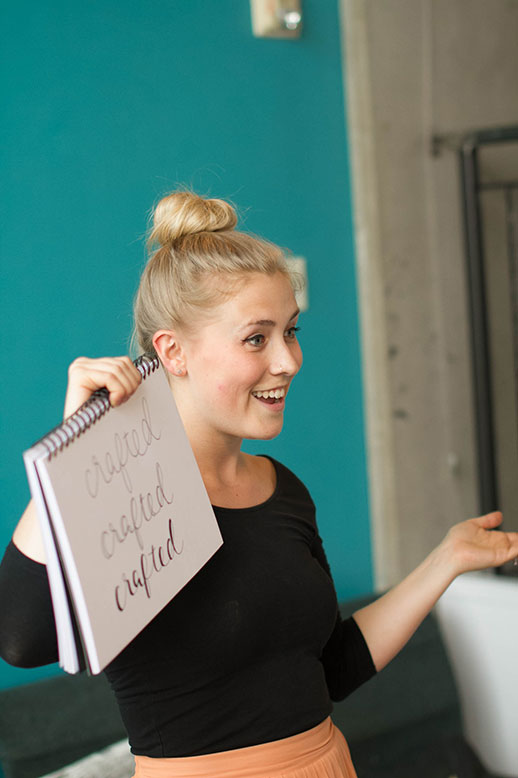 crafted
crafted
crafted